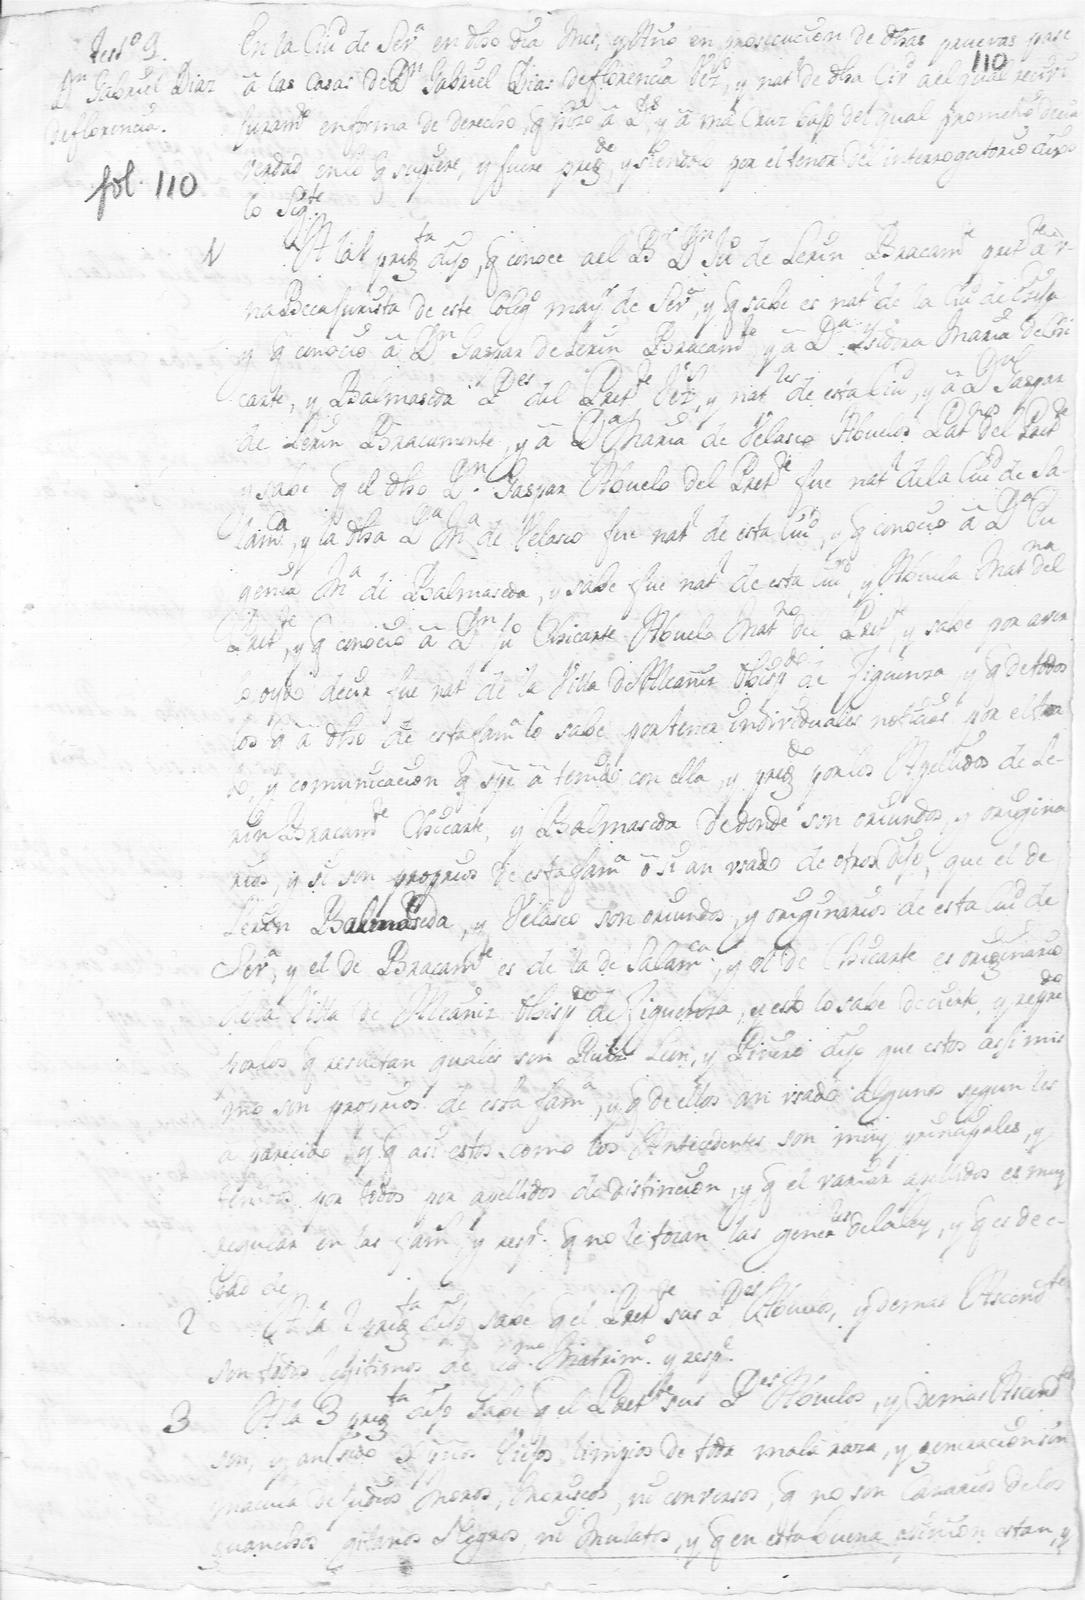 Testo 9.
Dn Gabriel Diaz
de florencia.
fol. 110
110
En la Ciud de Seva en dho dia Mes, y Año en prosecucion de dhas pruevas pase
â las casas de Dn Gabriel Dias de florencia Vezo, y natl de dha Ciud del qual recivi
juramto en forma de derecho, q hizo â Ds, y â una Cruz vajo del qual prometio decir
verdad en lo q supiere, y fuere pregdo, y siendolo por el tenor del interrogatorio dijo
lo Sigte
1 A la 1 pregta dijo, q conoce al Br Dn Ju de Lerin Bracamte prette â
na Beca Jurista de este Colego mayr de Seva, y q save es natl de la Ciud de
y q conocio â Dn Gaspar de Lerin Bracamte y â Da Isidora Maria de Chi
carte, y Balmaseda Pes del Prette Vezs, y nattes de esta Ciud, y â Dn Gaspar
de Lerin Bracamonte, y â Da Maria de Velasco Abuelos Pats del Prette
y save q el dho Dn Gaspar Abuelo del Prette fue natl de la Ciud de Sa-
lamca, y la dha Da Ma de Velasco fue natl de esta Ciud, y q conocio â Da Eu
genia Ma de Balmaseda, y save fue natl de esta Ciud, y Abuela Matna del
Prette, y q conocio â Dn Ju Chicarte Abuelo Matno del Prette, y save por aver
lo oydo decir fue natl de la Villa de Alcañiz Obispdo de Ziguenza, y q de todos
los q â dho de esta fama lo save por tener individuales noticias por el tra
to, y comunicacion q spe â tenido con ella, y pregdo por los Apellidos de Le-
rin Bracamte Chicarte, y Balmaseda de donde son oriundos, y origina
rios, y si son proprios de esta fama ô si an vsado de otros dijo, que el de
Lerin Balmaseda, y Velasco son oriundos, y originarios de esta Ciud de
Seva, y el de Bracamte es de la de Salamca, y el de Chicarte es originario
de la Villa de Alcañiz Obispdo de Ziguenza, y esto lo save de cierto, y pregdo
por los q resultan quales son Ruiz Leri, y Rivero dijo que estos assimis
mo son proprios de esta fama, y q de ellos an vsado algunos segun les
a parecido y q asi estos como los Antecedentes son muy principales, y
tenidos por todos por apellidos de distincion, y q el variar apellidos es muy
regular en las fams, y respe. q no le tocan las generles de la ley, y q es de e-
dad de
2 A la 2 pregta dijo save q el Prette sus Pes Abuelos, y demas Ascendtes
son todos legitimos de Matrimo. y respe.
3 A la 3 pregta dijo save q el Prette sus Pes Abuelos, y demas Ascendtes
son, y an sido Xpnos Viejos limpios de toda mala raza, y generacion sin
macula de Judios Moros, Moriscos, ni conversos, q no son Canarios de los
guanchos gitanos Negros, ni Mulatos, y q en esta buena opinion estan, y